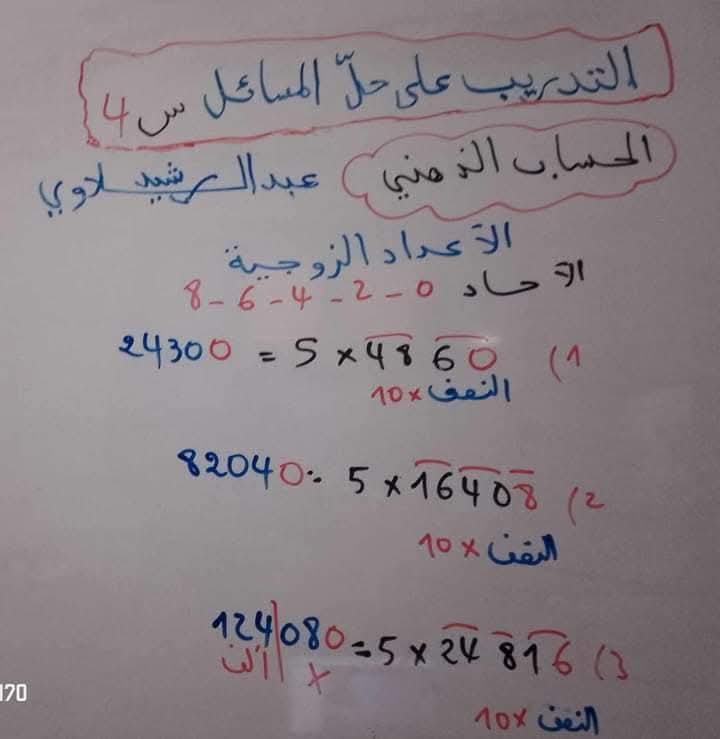 التدريب على حلّ المسائل س 4
الحساب الذهني عبد الرشيد سلاوي
الأعداد الزوجية
الآحاد 0 - 2 - 4 - 6 - 8
1) 4860 × 5 = 24300
النصف × 10
2) 16408 × 5 = 82040
النصف × 10
3) 24816 × 5 = 124080
ألف x
النصف × 10
170